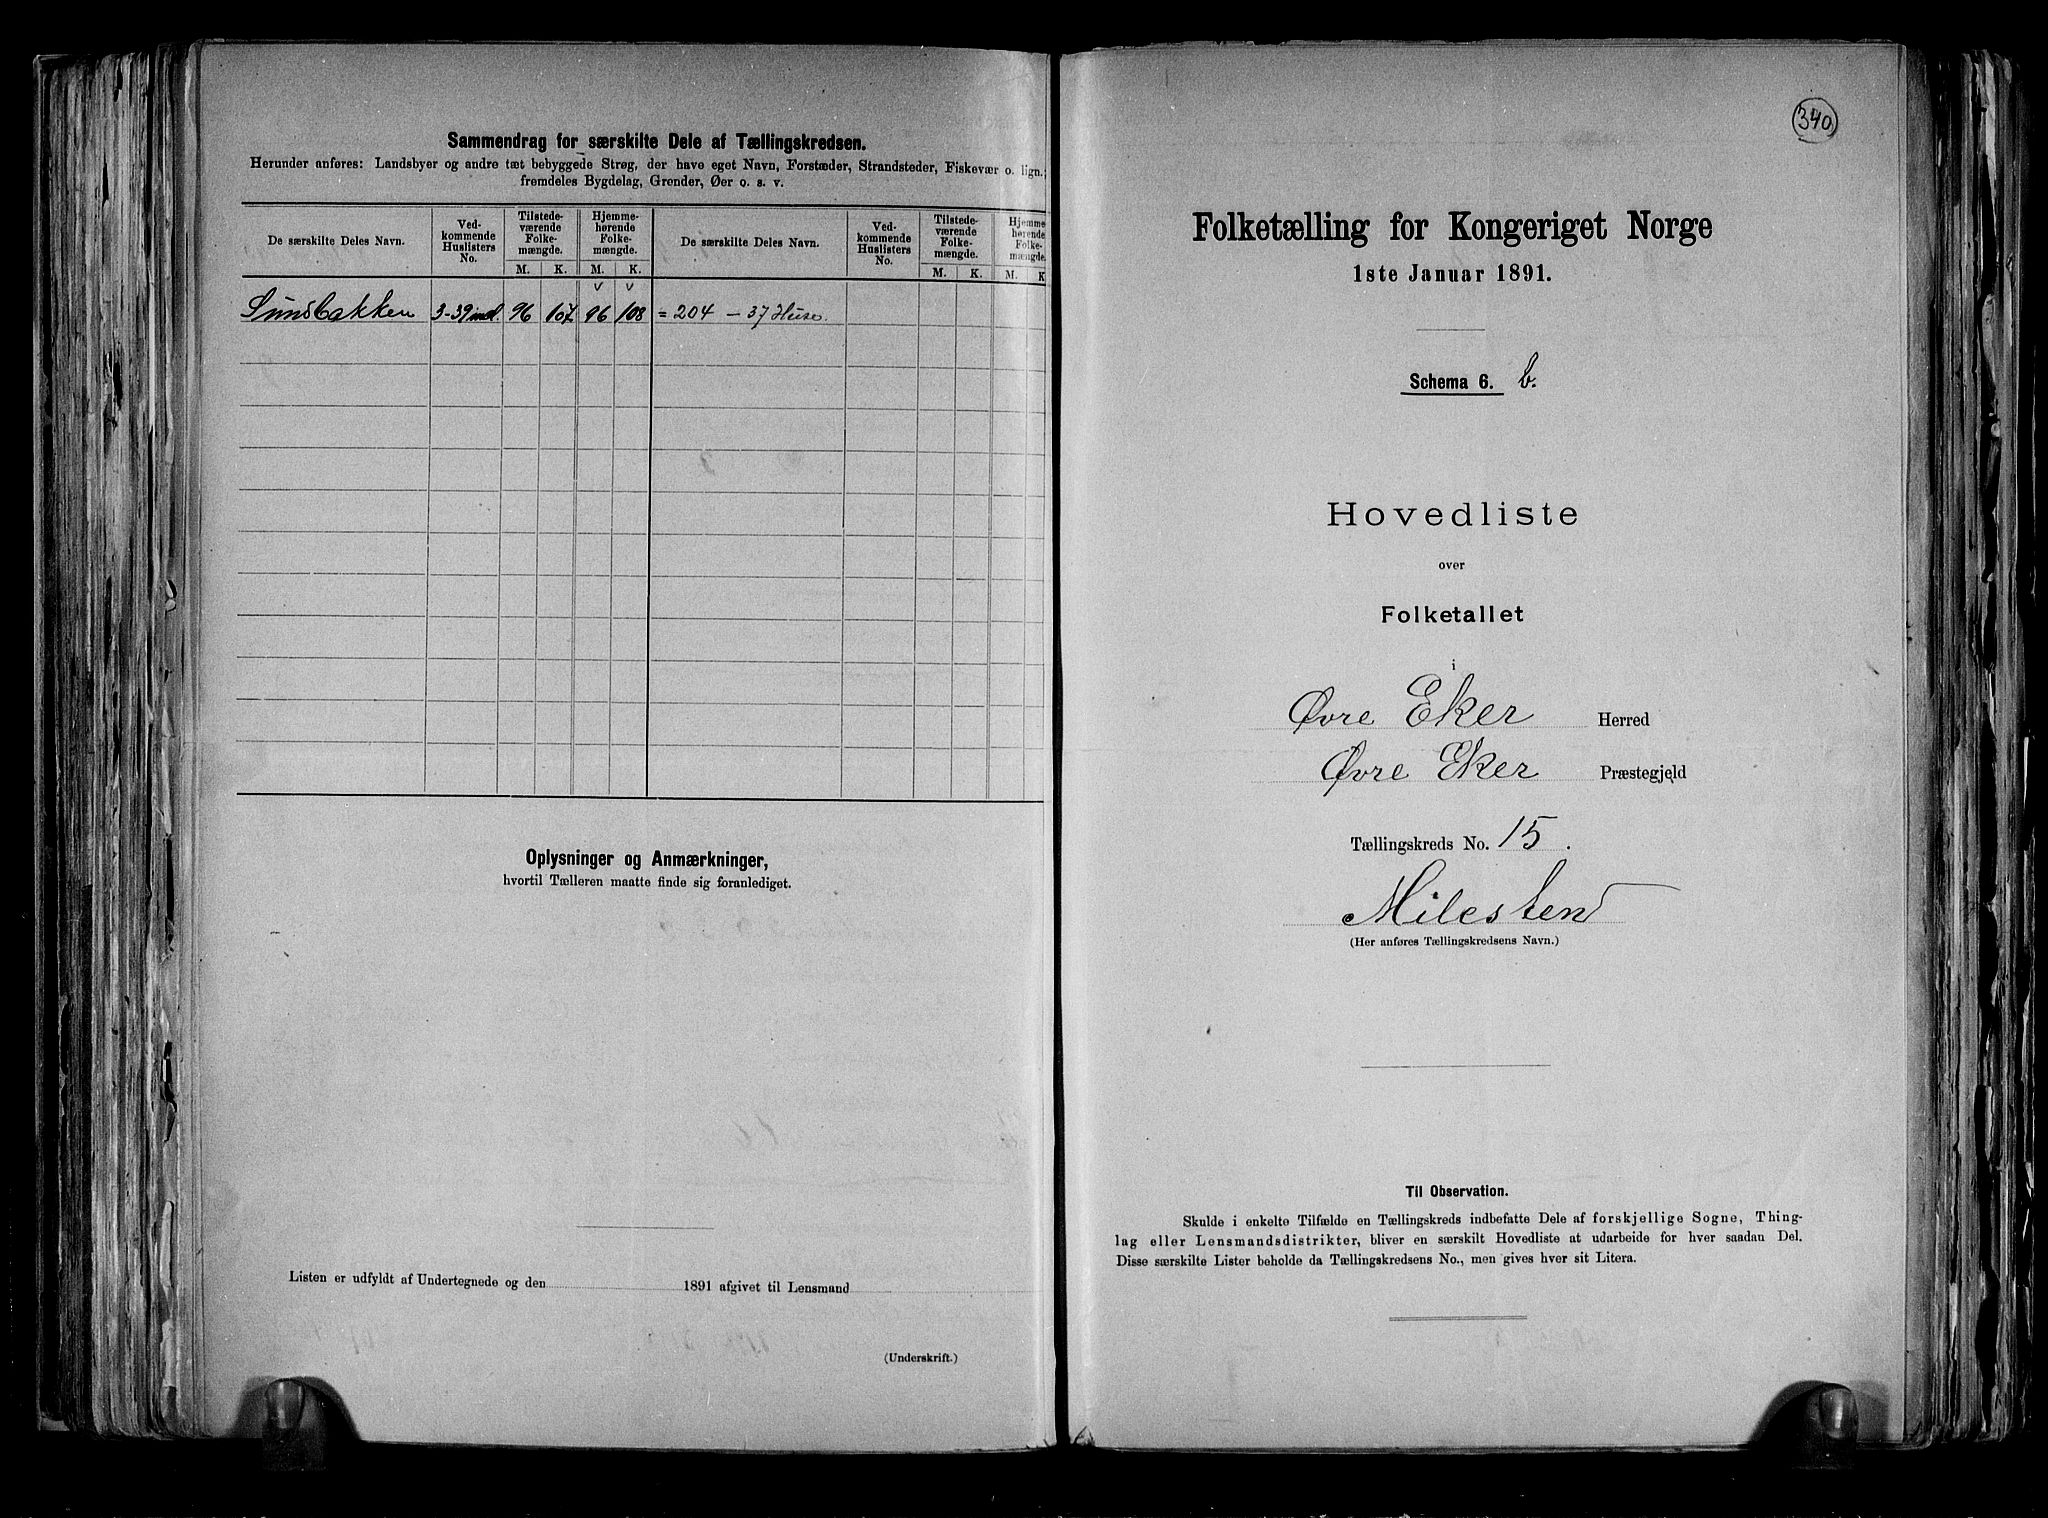 Sammendrag for særskilte Dele af Tællingskredsen.
Herunder anføres: Landsbyer og andre tæt bebyggede Strøg, der have eget Navn, Forstæder, Strandsteder, Fiskevær o. lign.;
fremdeles Bygdelag, Grender, Øer o. s. v.
De særskilte Deles Navn.
Ved-
kommende
Huslisters
No.
Tilstede-
værende
Folke-
mængde.
Hjemme-
hørende
Folke-
mængde.
De særskilte Deles Navn.
Ved-
kommende
Huslisters
No.
Tilstede-
værende
Folke-
mængde.
Hjemme-
hørende
Folke-
mængde.
M. K. M. K. M. K. M. K
Sundbakken 3-39 incl. 96 107 96 108 = 204 - 37 Huse.
Oplysninger og Anmærkninger,
hvortil Tælleren maatte finde sig foranlediget.
Listen er udfyldt af Undertegnede og den 1891 afgivet til Lensmand
(Underskrift.)
340
Folketælling for Kongeriget Norge
1ste Januar 1891.
Schema 6. b.
Hovedliste
over
Folketallet
i
Øvre Eker Herred
Øvre Eker Præstegjeld
Tællingskreds No. 15.
Milesten
(Her anføres Tællingskredsens Navn.)
Til Observation.
Skulde i enkelte Tilfælde en Tællingskreds indbefatte Dele af forskjellige Sogne, Thing-
lag eller Lensmandsdistrikter, bliver en særskilt Hovedliste at udarbeide for hver saadan Del.
Disse særskilte Lister beholde da Tællingskredsens No., men gives hver sit Litera.